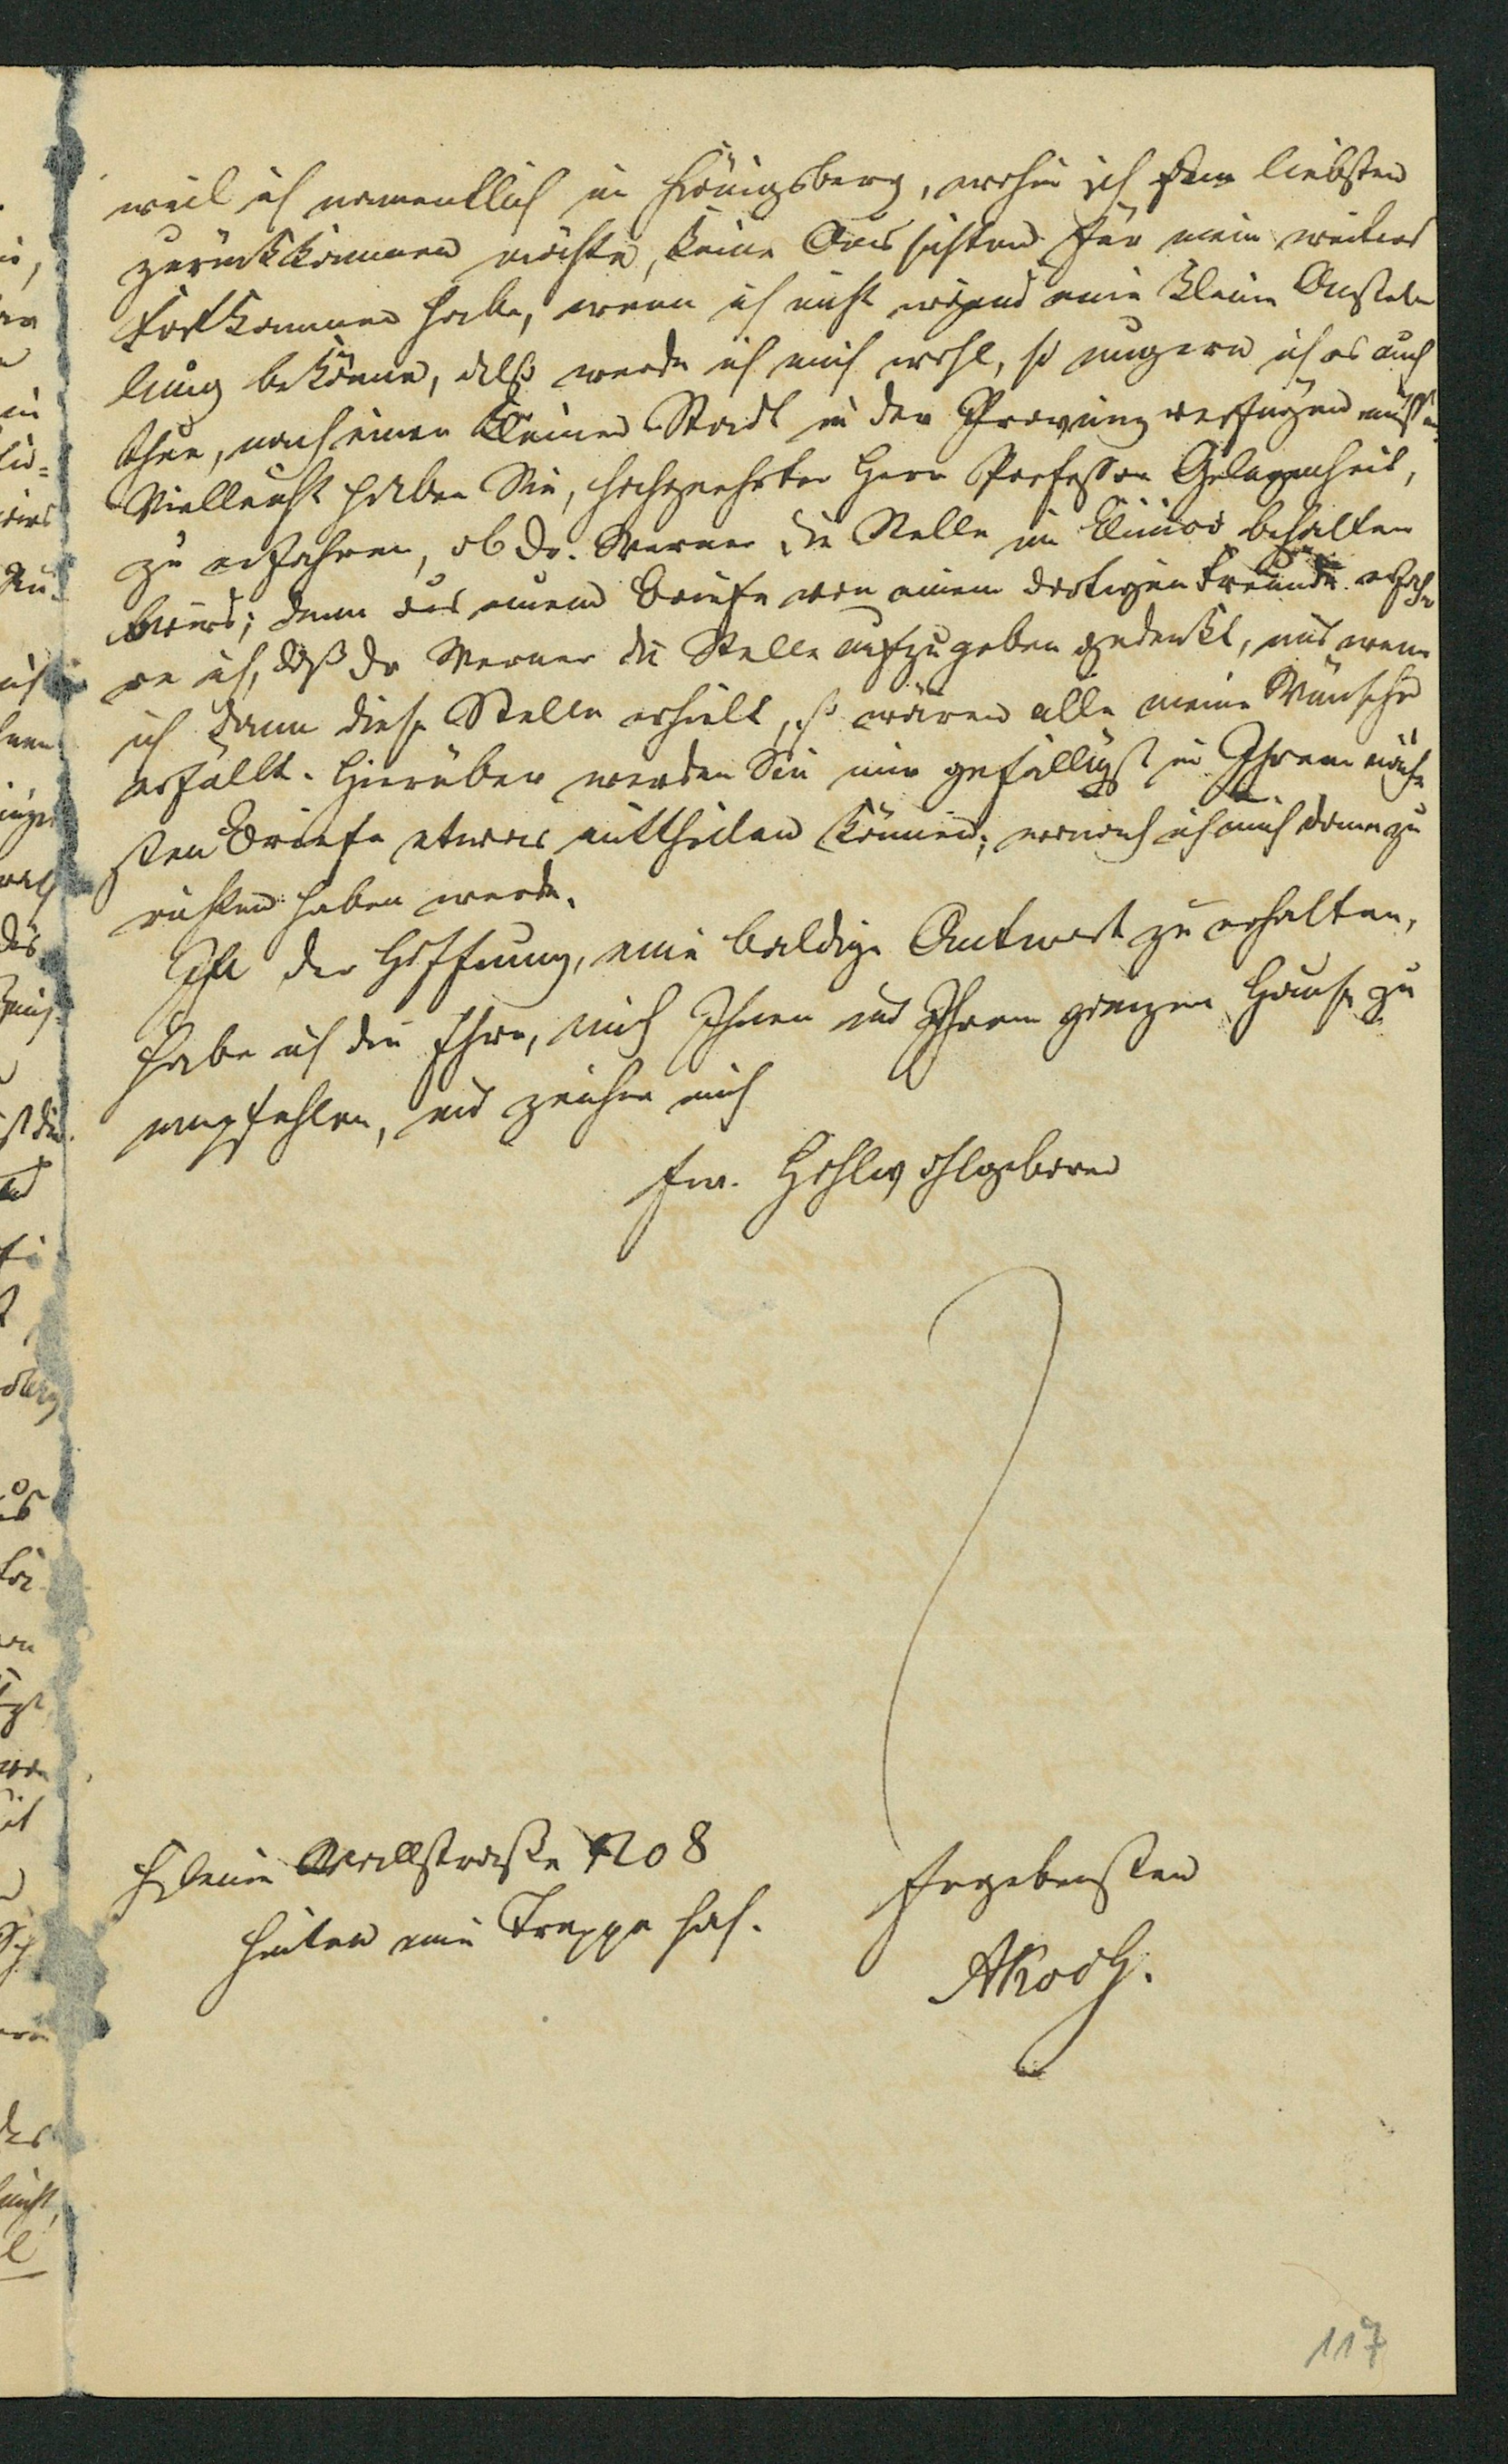 weil ich namentlich in Königsberg, wohin ich am liebsten
zurückkommen möchte, keine Aussichten für mein weiteres
Fortkommen habe, wenn ich nicht irgend eine kleine Anstel
lung bekomme, also werde ich mich wohl, so ungern ich es auch
thue, nach einer kleinen Stadt in der Provinz verfügen müssen.
Vielleicht haben Sie, hochgeehrter Herr Professor Gelegenheit,
zu erfahren, ob Dr. Werner die Stelle im behalten
wird; denn aus einem Briefe von einem dortigen Freunde erfah
re ich, daß Dr Werner die Stelle aufzugeben gedenkt, und wenn
ich dann diese Stelle erhielt, so wären alle meine Wünsche
erfüllt. Hierüber werden Sie mir gefälligst in Ihrem näch
sten Briefe etwas mittheilen können, wonach ich mich dann zu
richten haben werde.
In der Hoffnung, eine baldige Antwort zu erhalten,
habe ich die Ehre, mich Ihnen und Ihrem ganzen Hause zu
empfehlen, und zeichne mich
Ew. Hochwohlgeboren
Kleine Wallstraße No 8
hinten eine Treppe hoch.
Ergebensten
AKoch.
117